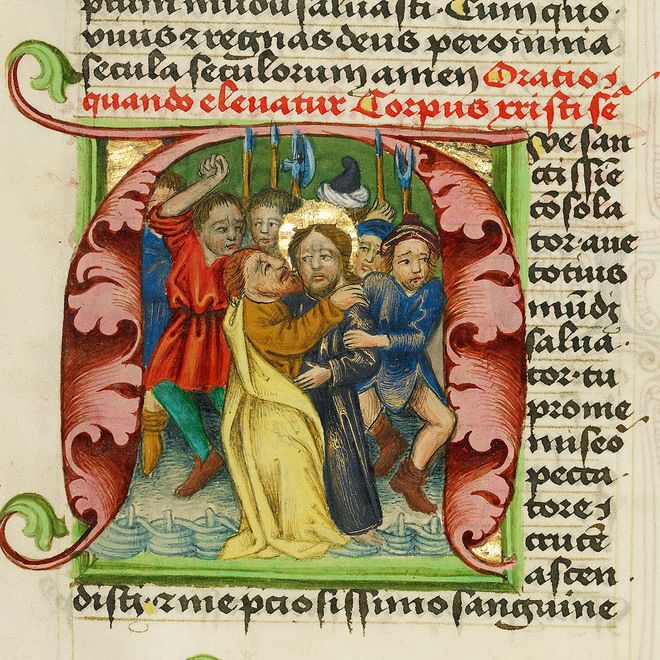 ptum mūdū saluasti. Cum quo
viuis ⁊ regnas deus per omnia
secula seculorum amen Oratio
quando eleuatur Corpus xristi
Aue san
ctissīe
cōsola
tor·aue
totius
mūdi
salua·
tor·tu
pro me
miseō
pecca
tore ī
crucē
ascen
disti·⁊ me pciosissimo sanguine